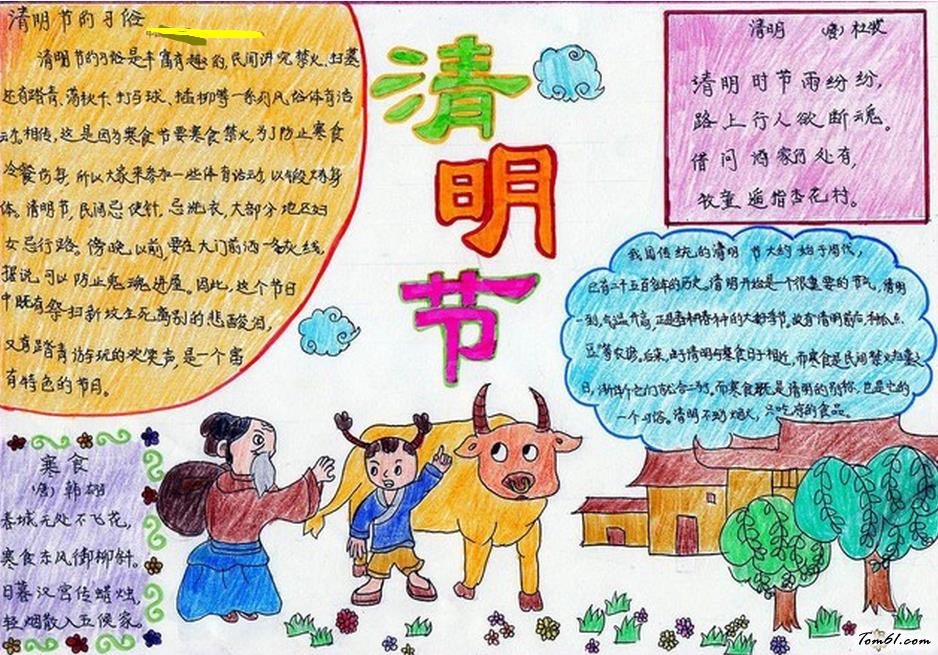 清明节的习俗
清明节的习俗是丰富有趣的,民间讲究禁火、扫墓,
还有踏青、荡秋千、打马球、插柳等一系列风俗体育活
动。相传,这是因为寒食节要寒食禁火,为了防止寒食
冷餐伤身,所以大家来参加一些体育活动,以锻炼身
体。清明节,民间忌使针,忌洗衣,大部分地区妇
女忌行路。傍晚以前,要在大门前洒一条灰线,
据说可以防止鬼魂进屋。因此,这个节日
中既有祭扫新坟生死离别的悲酸泪,
又有踏青游玩的欢笑声,是一个富
有特色的节日。
清
明
节
清明 (唐) 杜牧
清明时节雨纷纷,
路上行人欲断魂。
借问酒家何处有,
牧童遥指杏花村。
我国传统的清明节大约始于周代,
已有二千五百多年的历史。清明开始是一个很重要的节气,清明
一到,气温升高,正是春耕春种的大好时节,故有清明前后,种瓜点
豆等农谚。后来,由于清明与寒食日子相近,而寒食是民间禁火扫墓之
日,渐渐它们就合二为一,而寒食既是清明的别称,也是它的
一个习俗。清明不动烟火,只吃凉的食品。
寒食
(唐) 韩翃
春城无处不飞花,
寒食东风御柳斜。
日暮汉宫传蜡烛,
轻烟散入五侯家。
Tom61.com